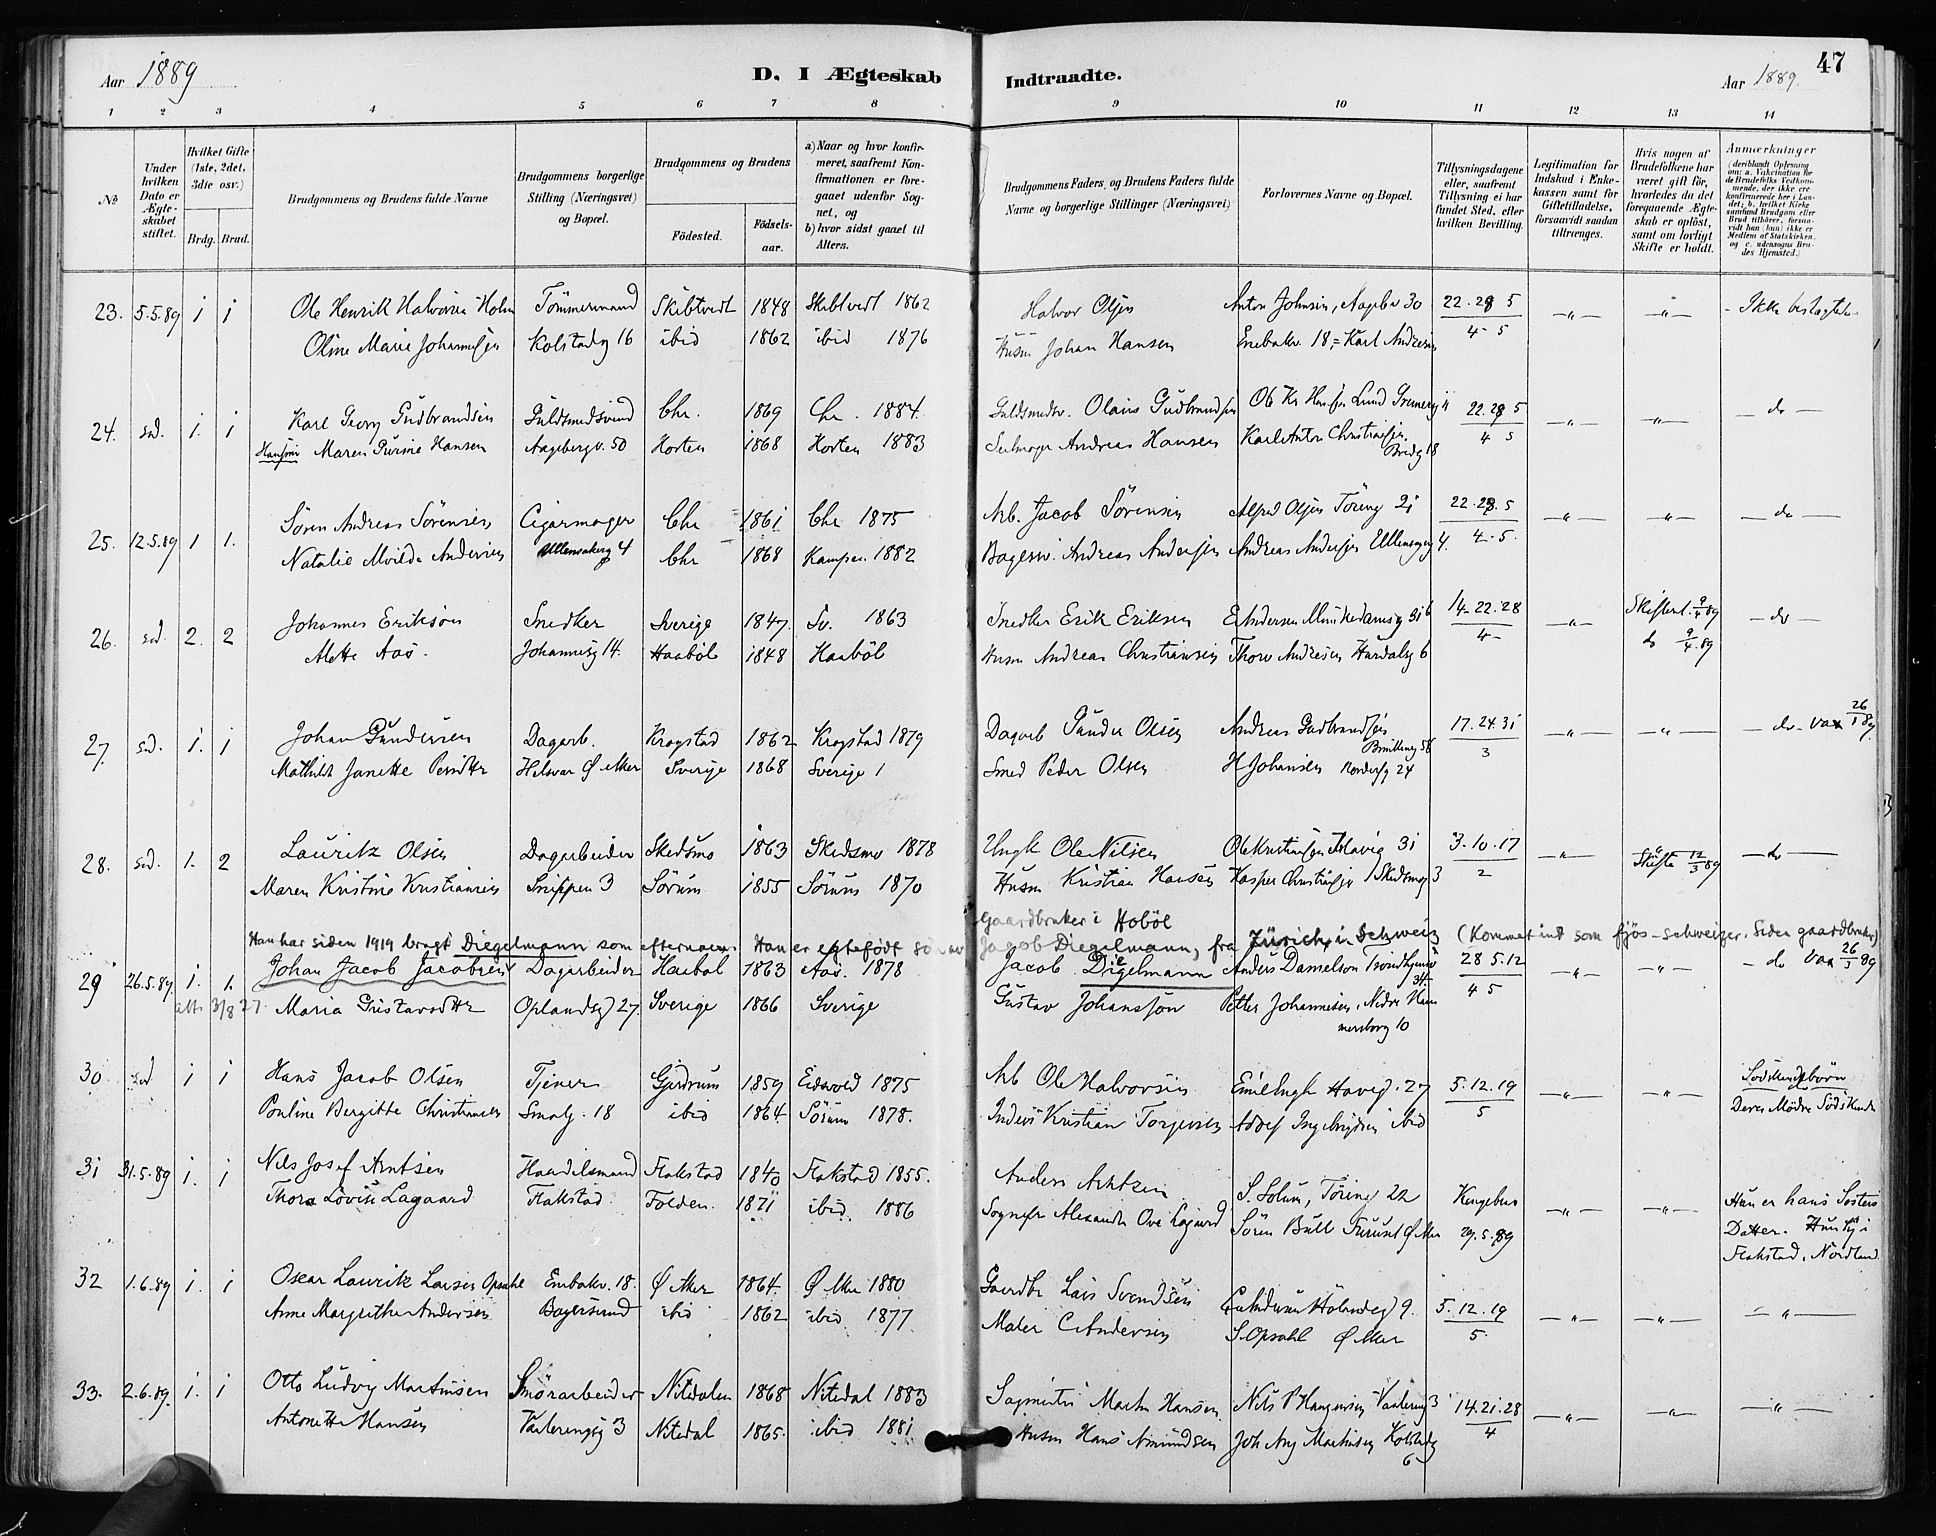 47
Aar 1889
D. I Ægteskab
Indtraadte.
Aar 1889.
1 2 3 4 5 6 7 8 9 10 11 12 13 14
No
Under hvilken Dato er Ægteskabet stiftet.
Hvilket Gifte (1ste, 2det, 3die osv.)
Brdg. Brud.
Brudgommens og Brudens fulde Navne
Brudgommens borgerlige Stilling (Næringsvei) og Bopæl.
Brudgommens og Brudens
Fødested.
Fødselsaar.
a) Naar og hvor konfirmeret, saafremt Konfirmationen er foregaaet udenfor Sognet, og
b) hvor sidst gaaet til Alters.
Brudgommens Faders, og Brudens Faders fulde Navne og borgerlige Stillinger (Næringsvei)
Forlovernes Navne og Bopæl.
Tillysningsdagene eller, saafremt Tillysning ei har fundet Sted, efter hvilken Bevilling.
Legitimation for Indskud i Enkekassen samt for Giftetilladelse, forsaavidt saadan tiltrænges.
Hvis nogen af Brudefolkene har været gift før, hvorledes da det foregaaende Ægteskab er opløst, samt om lovligt Skifte er holdt.
Anmærkninger
(deriblandt Oplysning om: a. Vakcination for de Brudefolks Vedkommende, der ikke ere konfirmerede her i Landet; b. hvilket Kirkesamfund Brudgom eller Brud tilhører, forsaavidt han (hun) ikke er Medlem af Statskirken, og c. udensogns Brudes Hjemsted.)
23. 5.5.89 1 1 Ole Henrik Halvorsen Holm Tömmermand Skibtvedt 1848 Skibtvedt 1862 Halvor Olsen Anton Johnsen, Aageb 30 22.28 5
Oline Marie Johannesen Kolstadg 16 ibid 1862 ibid 1876 Husm Johan Hansen Enebakv. 18, Karl Andresen 4 - 5
24. sd. 1. 1 Karl Georg Gudbrandsen Guldsmedsvend Chr. 1869 Chr. 1884 Guldsmedsv. Olaus Gudbrandsen 22.29 5 - do -
Maren Hansen Aagebergv. 50 Horten 1868 Horten 1883 Andreas Hansen Karl Anton Christiansen 4 5
Bredg 18
25. 12.5.89 1 1. Sören Andreas Sörensen Cigarmager Chr 1861 Chr 1875 Arb. Jacob Sörensen Alfred Olsen Töieng 21 22.28.5 - do -
Natalie Andersen Ullensakerg 4 Chr 1868 Kampen 1882 Andreas Andersen Andreas Andersen 4. 4.5.
26. sd. 2. 2 Johannes Erikson Snedker Sverige 1847 Sv. 1863 Snedker Erik Eriksen E Andersen Munkedamsv 14-22.28 Skiftet 9/4 89 - do -
Mette Aas. Johannesg 14. Haabøl 1848 Haabøl Husm Andreas Christiansen Thorv Andresen Hurdalsg 6 4- do 9/4 89
27. sd. 1. 1 Johan Gundersen Dagarb. Krogstad 1862 Krogstad 1879 Dagarb Gunder Olsen Andreas Gudbrandsen 17.24.31 - do - Vax 26/1 89
Mathilde Janette Persdtr Ø Aker Sverige 1868 Sverige 1 Smed Peder Olsen H Johansen Norderfg 24 3
28. sd. 1. 2 Lauritz Olsen Dagarbeider Skedsmo 1863 Skedsmo 1878 Ungk Ole Nilsen 3.10.17 Skifte 12/3 89 - do -
Maren Kristine Kristiansen Snippen 3 Sörum 1855 Sörum 1870 Husm Kristian Hansen Kasper Christiansen Skedsmog 3 2
Gaardbruker i Hobøl
Han har siden 1919 brugt Diegelmann som efternavn. Han er egtefødt søn av Jagob Diegelmann, fra Zürich i Schweiz (Kommet ind som fjös-schweizer. Siden gaardbruker)
29 26.5.89 1. 1. Johan Jacob Jacobsen Dagarbeider Haabøl 1863 Aas. 1878 Jacob Digelmann Anders Danielson 28 5.12 - do Vax 26/5 89
att. 3/8 27. Maria Gustavsdtr Oplandsg 27. Sverige 1866 Sverige Gustav Johansson Petter Johannesen, Nedre Hammersborg 10 4 5
30 sd 1 1 Hans Jacob Olsen Tjener Gjerdrum 1859 Eidsvold 1875 Arb Ole Halvorsen 27 5.12.19 Södskendebörn
Pauline Bergitte Christiansen Smalg. 18 ibid 1864. Sörum 1878. Kristian Torgersen ibid 5 Deres Mödre Södskende
31 31.5.89 1. 1 Nils Josef Arntsen Handelsmand Flakstad 1840 Flakstad 1855. Anders Arntzen S. Solum, Töieng 22 Kongebrev Hun er hans Sösters
Thora Lovise Lagaard Flakstad Folden. 1871 ibid. 1886 Sognepr Alexander Ove Lagaard Sören Bull Furuset Ø Aker 29.5.89 Datter. Hun i Flakstad, Nordland
32 1.6.89 1. 1 Oscar Lauritz Larsen Opsahl Enebakv. 18. Ø Aker 1864. Ø Aker 1880 Gaardbr Lars Svendsen 5.12.19
Anne Margrethe Andersen Bagersvend ibid 1862 ibid. 1877 Maler C Andersen S. Opsahl Ø Aker 5.
33. 2.6.89. 1. 1 Otto Ludvig Martinsen Smörarbeider Nitedalen 1868 Nitedal 1883 Martin Hansen Nils P Haugersen Vaalereng 3 14.21.28
Antonette Hansen Vaalerengg 3 Nitedal 1865. ibid 1881 Husm Hans Amundsen Joh Aug Martinsen Kolstadg 6 4